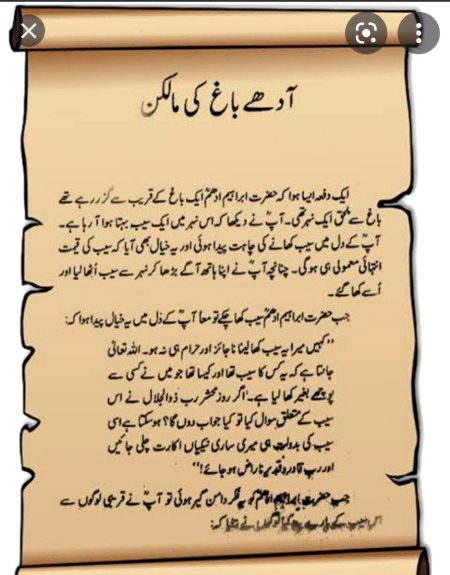 آدھے باغ کی مالکن
ایک دفعہ ایسا ہوا کہ حضرت ابراہیم ادھمؒ ایک باغ کے قریب سے گزر رہے تھے
باغ سے ملحق ایک نہر تھی۔ آپؒ نے دیکھا کہ اس نہر میں ایک سیب بہتا ہوا آ رہا ہے۔
آپؒ کے دل میں سیب کھانے کی چاہت پیدا ہوئی اور یہ خیال بھی آیا کہ سیب کی قیمت
انتہائی معمولی ہی ہو گی۔ چنانچہ آپؒ نے اپنا ہاتھ آگے بڑھا کر نہر سے سیب اُٹھا لیا اور
اُسے کھا گئے۔
جب حضرت ابراہیم ادھمؒ سیب کھا چکے تو معاً آپؒ کے دل میں یہ خیال پیدا ہوا کہ:
”کہیں میرا یہ سیب کھا لینا ناجائز اور حرام ہی نہ ہو۔ اللہ تعالیٰ
جانتا ہے کہ یہ کس کا سیب تھا اور کیسا تھا جو میں نے کسی سے
پوچھے بغیر کھا لیا ہے۔ اگر روزِ محشر رب ذوالجلال نے اس
سیب کے متعلق سوال کیا تو کیا جواب دوں گا؟ ہو سکتا ہے اسی
سیب کی بدولت ہی میری ساری نیکیاں اکارت چلی جائیں
اور ربِ قادر و قدیر ناراض ہو جائے!“
جب حضرت ابراہیم ادھمؒ کو یہ فکر دامن گیر ہوئی تو آپؒ نے قریبی لوگوں سے
اس سیب کے بارے لوگوں نے بتایا کہ: